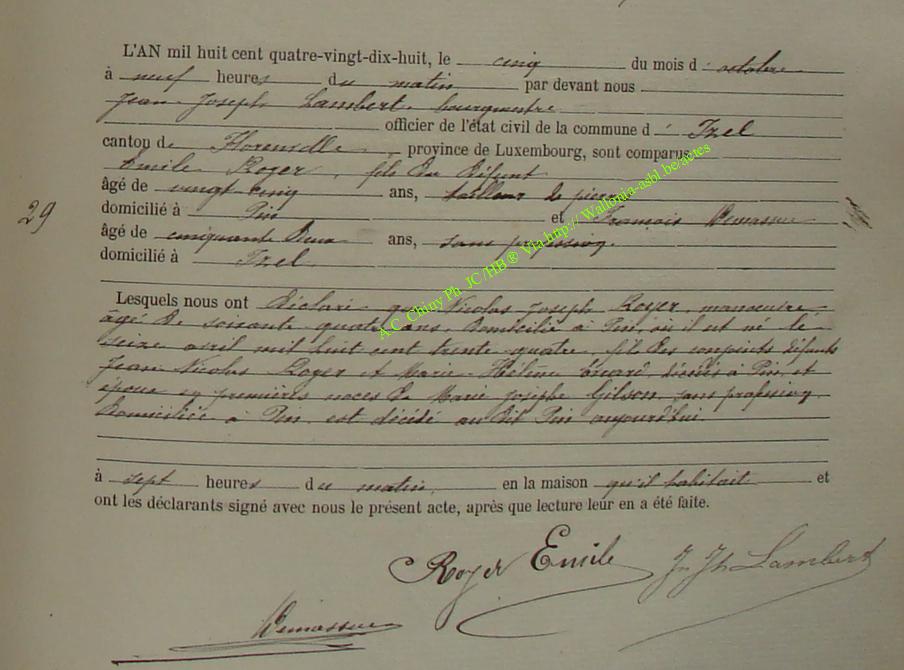 L'AN mil huit cent quatre-vingt-dix-huit, le cinq du mois d'octobre
à neuf heures du matin par devant nous
Jean Joseph Lambert bourgmestre
officier de l'état civil de la commune d'Izel
canton de Florenville, province de Luxembourg, sont comparus
Emile Roger, fils du défunt
âgé de vingt cinq ans, tailleur de pierre
domicilié à Pin et François
âgé de cinquante deux ans, sans profession,
domicilié à Izel
29
Lesquels nous ont déclaré que Nicolas Joseph Roger, manoeuvre
âgé de soixante quatre ans, domicilié à Pin, où il est né le
seize avril mil huit cent trente quatre, fils des conjoints défunts
Jean Nicolas Roger et Marie Hélène décédés à Pin, et
époux en premières noces de Marie Josèphe Gilson, sans profession,
domiciliée à Pin est décédé au dit Pin aujourd'hui
à sept heures du matin, en la maison qu'il habitait et
ont les déclarants signé avec nous le présent acte, après que lecture leur en a été faite.
Roger Emile Jn Jh Lambert
A.C. Chiny Ph. JC/HB® Via http://Wallonia-asbl.be/actes